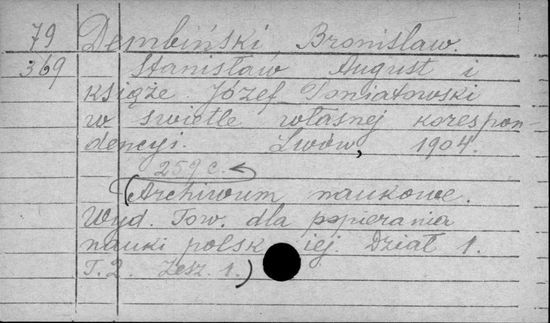 79 Dembiński Bronisław.
369 Stanisław August i
książe Józef Poniatowski
w świetle własnej korespon-
dencyi. Lwów, 1904.
259 c.
(Archiwum naukowe.
Wyd. Tow. dla popierania
nauki polskiej. Dział 1.
T. 2. Zesz. 1.)